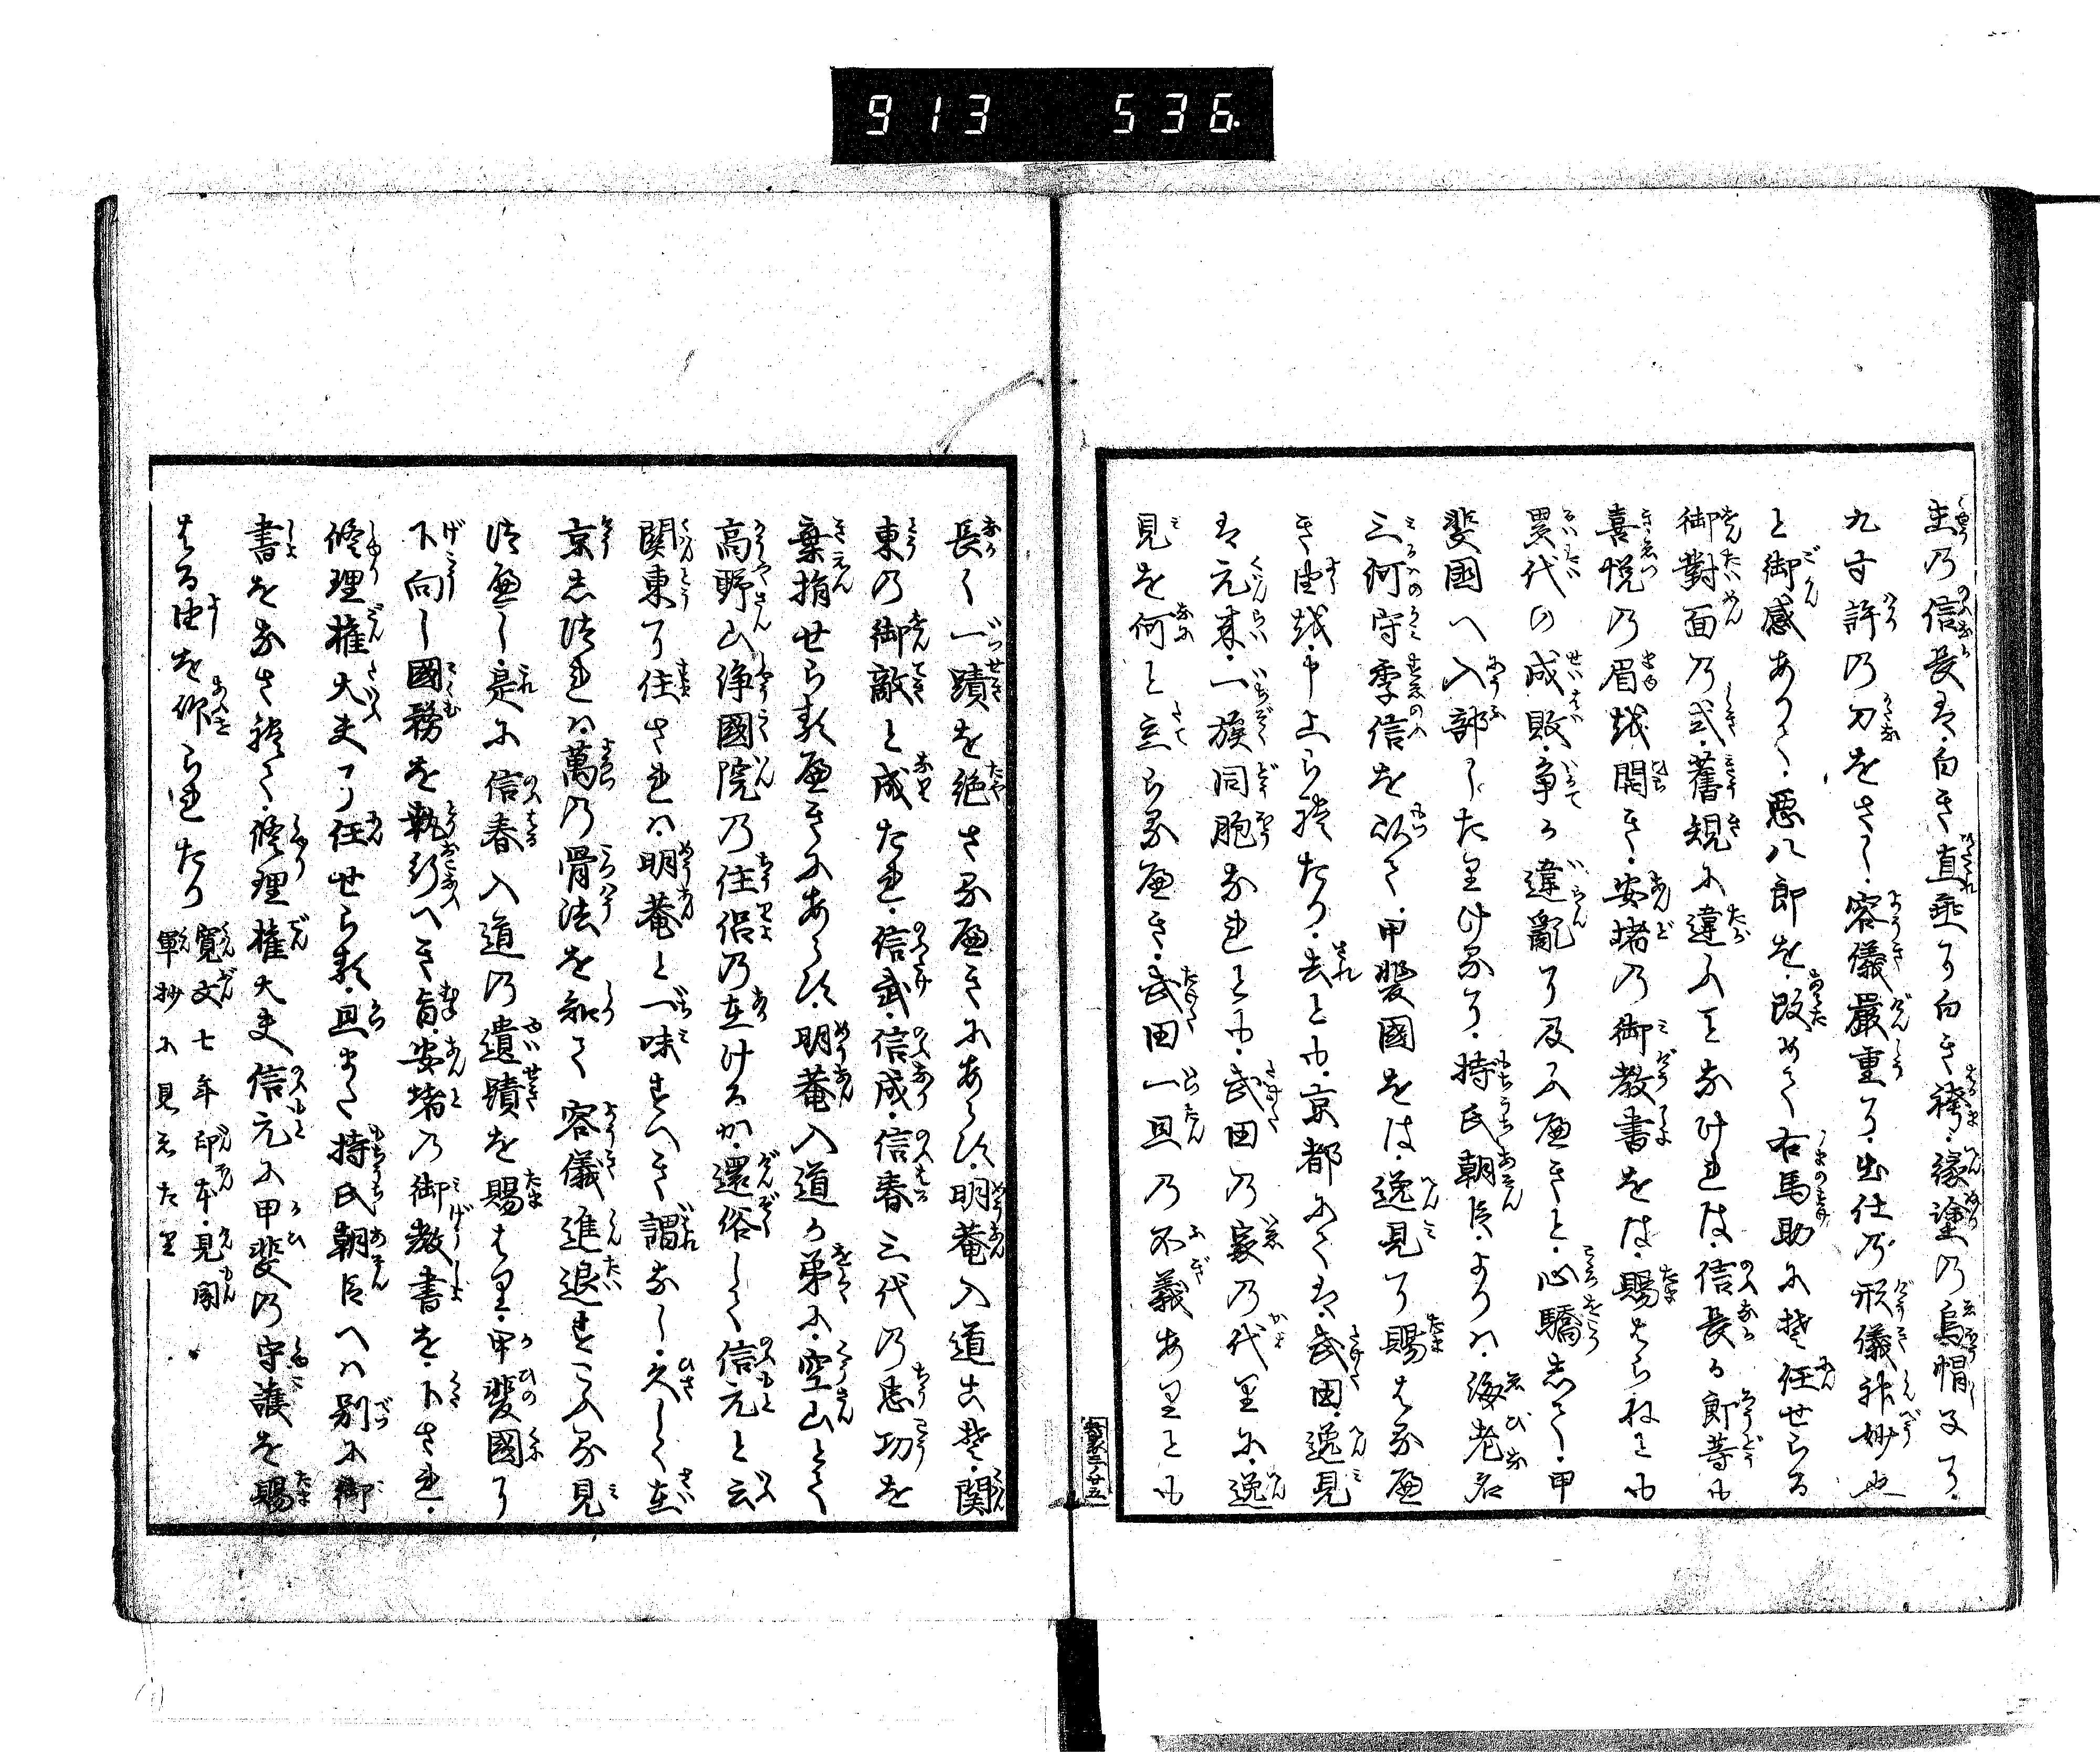 913 536.
主乃信長は白き直垂に白き袴縁塗乃烏帽子に
九寸許乃刀をさし容儀嚴重に出仕乃形儀神妙也
と御感ありて惡八郎を改めて右馬助に任せらる
御對面乃式舊規に違ふ事なけれは信長か郎等も
喜悅乃眉を開き安堵乃御教書をは賜はらねとも
累代の成敗争か違亂に及ふへきと心驕して甲
斐國へ入部したりける持氏朝臣よりは海老名
三河守季信を以て甲斐國をは逸見に賜はるへ
き由を申上られたり去とも京都にては武田逸見
は元来一族同胞なれとも武田乃家乃代りに逸
見を何と立らるへき武田一旦乃不義ありとも
長く一蹟を絶さるへきにあらす明菴入道こそ関
東乃御敵と成たれ信武信成信春三代乃忠功を
棄捐せらるへきにあらす明菴入道か弟に空山とて
高野山浄國院乃住侶乃在けるか還俗して信元と云
関東に住されは明菴と一味すへき謂なし久しく在
京しけれは萬乃骨法を知て容儀進退すこふる見
請へし是に信春入道乃遺蹟を賜はり甲斐國に
下向し國務を執行へき旨安堵乃御教書を下され
修理権大夫に任せらる且また持氏朝臣へは別に御
書をなされて修理権大夫信元に甲斐乃守護を賜
はる由を仰られたり 寛文七年印本見聞
軍抄に見えたり